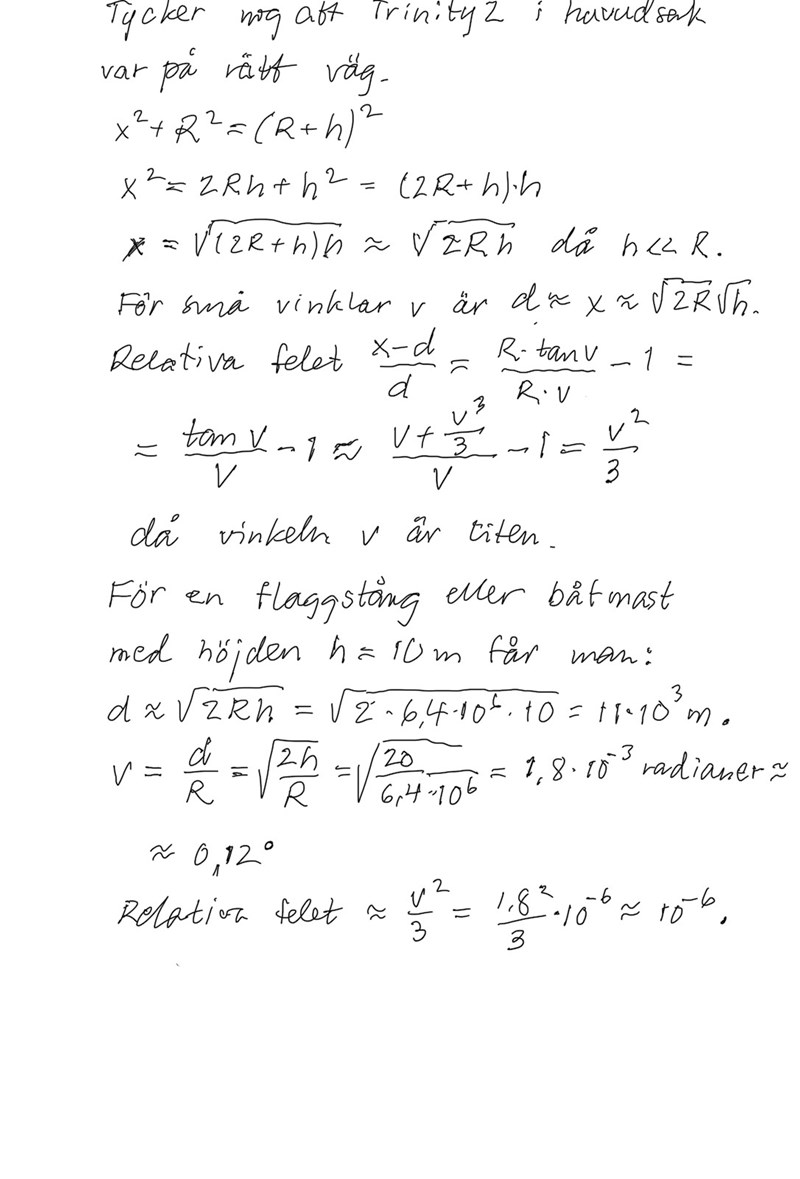 Tycker nog att Trinity2 i huvudsak
var på rätt väg.
x²+R²=(R+h)²
x²=2Rh+h²=(2R+h)·h
x=√((2R+h)h)≈√(2Rh) då h<<R.
För små vinklar v är d≈x≈√(2R)√h.
Relativa felet (x-d)/d=(R·tanv)/(R·v)-1=
=(tan v)/v-1≈(v+v³/3)/v-1=v²/3
då vinkeln v är liten.
För en flaggstång eller båtmast
med höjden h=10m får man:
d≈√(2Rh)=√(2·6,4·10⁶·10)=11·10³m.
v=d/R=√(2h/R)=√(20/(6,4·10⁶))=1,8·10⁻³ radianer≈
≈0,12°
Relativa felet≈v²/3=(1,8²/3)·10⁻⁶≈10⁻⁶.